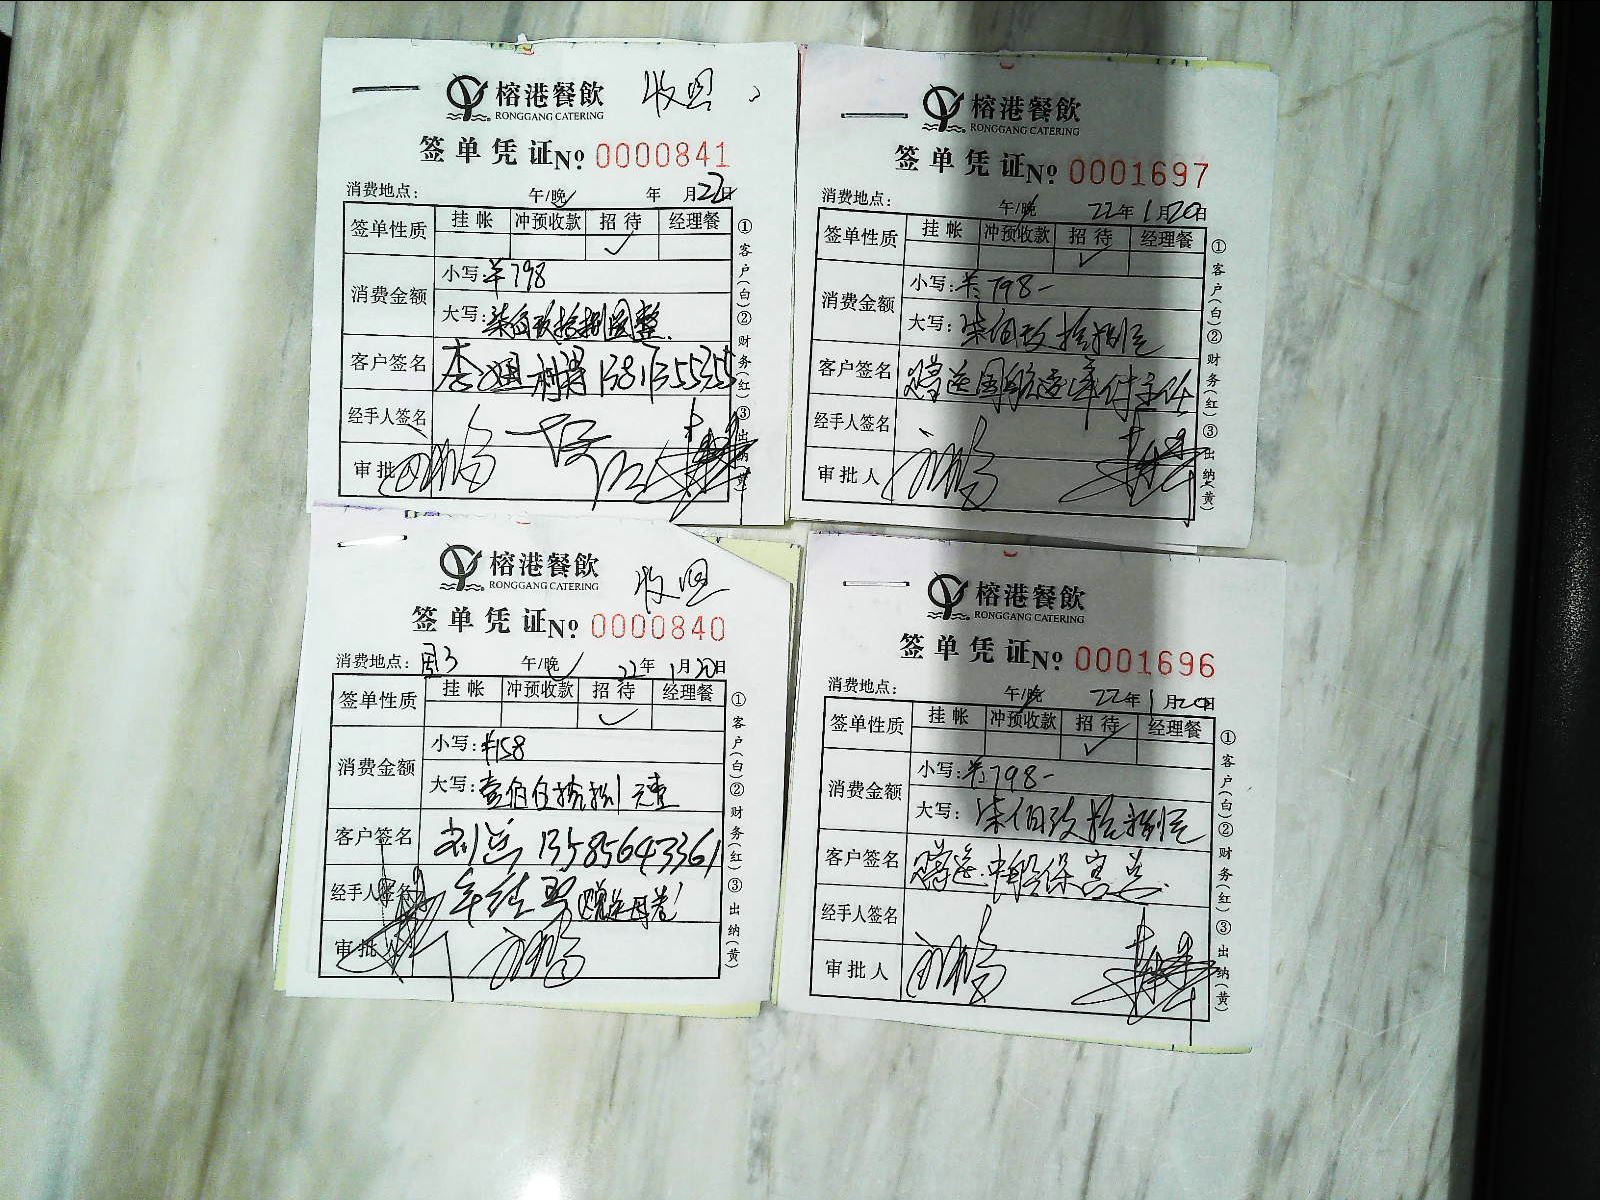 榕港餐飲 收回
RONGGANG CATERING
签单凭证 Nº 0000841
消费地点： 午/晚✓ 年 月22日
签单性质 挂帐 冲预收款 招待 经理餐
✓
消费金额 小写：¥798
大写：柒佰玖拾捌圆整
客户签名
经手人签名
审批人
①客户(白)②财务(红)③出纳(黄)
榕港餐飲
RONGGANG CATERING
签单凭证 Nº 0001697
消费地点： 午/晚 22年1月20日
签单性质 挂帐 冲预收款 招待 经理餐
✓
消费金额 小写：¥798-
大写：柒佰玖拾捌元
客户签名 赠送国航
经手人签名
审批人
①客户(白)②财务(红)③出纳(黄)
榕港餐飲 收回
RONGGANG CATERING
签单凭证 Nº 0000840
消费地点： 午/晚✓ 22年1月20日
签单性质 挂帐 冲预收款 招待 经理餐
✓
消费金额 小写：¥158
大写：壹佰伍拾捌元整
客户签名 13585643361
经手人签名
审批人
①客户(白)②财务(红)③出纳(黄)
榕港餐飲
RONGGANG CATERING
签单凭证 Nº 0001696
消费地点： 午/晚 22年1月20日
签单性质 挂帐 冲预收款 招待 经理餐
✓
消费金额 小写：¥798-
大写：柒佰玖拾捌元
客户签名 赠送
经手人签名
审批人
①客户(白)②财务(红)③出纳(黄)